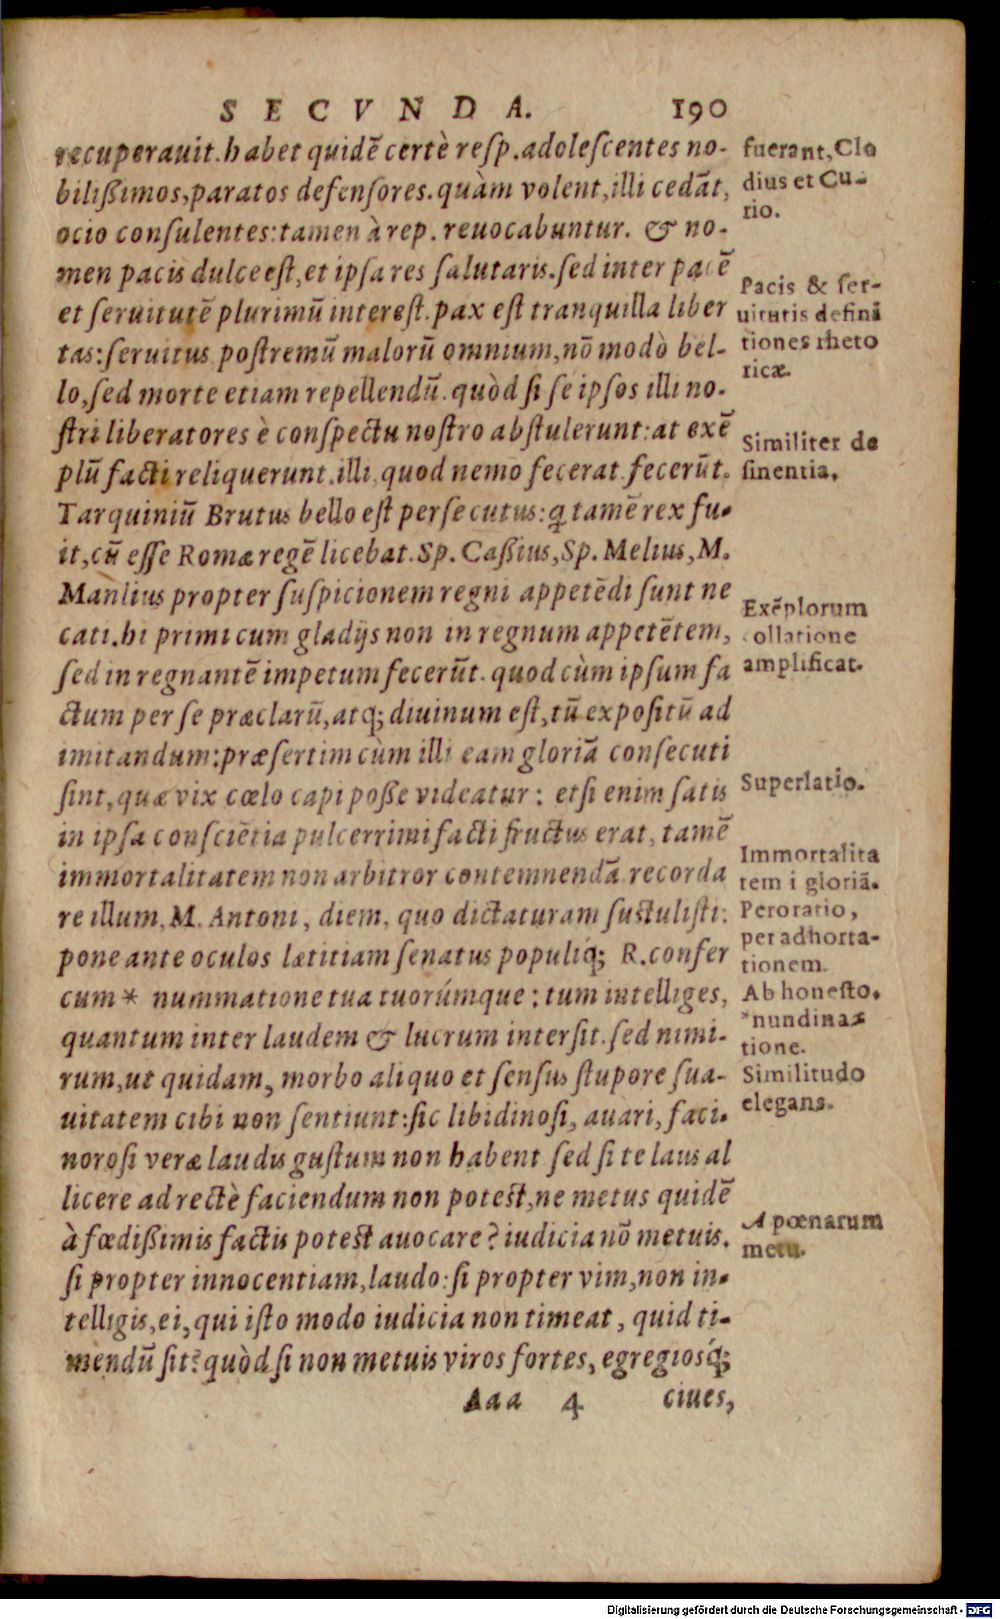 SECVNDA. 190
recuperauit. habet quidẽ certè resp. adolescentes no-
bilißimos, paratos defensores. quàm volent, illi cedãt,
ocio consulentes: tamen à rep. reuocabuntur. & no-
men pacis dulce est, et ipsa res salutaris. sed inter pacẽ
et seruitutẽ plurimũ interest. pax est tranquilla liber
tas: seruitus postremũ malorũ omnium, nõ modò bel-
lo, sed morte etiam repellendũ. quòd si se ipsos illi no-
stri liberatores è conspectu nostro abstulerunt: at exẽ
plũ facti reliquerunt. illi, quod nemo fecerat. fecerũt.
Tarquiniũ Brutus bello est persecutus: q tamẽ rex fu-
it, cũ esse Romæ regẽ licebat. Sp. Caßius, Sp. Melius, M.
Manlius propter suspicionem regni appetẽdi sunt ne
cati. hi primi cum gladijs non in regnum appetẽtem,
sed in regnantẽ impetum fecerũt. quod cùm ipsum fa
ctum per se præclarũ, atq; diuinum est, tũ expositũ ad
imitandum: præsertim cùm illi eam gloriã consecuti
sint, quæ vix cœlo capi poße videatur: etsi enim satis
in ipsa consciẽtia pulcerrimi facti fructus erat, tamẽ
immortalitatem non arbitror contemnendã. recorda
re illum, M. Antoni, diem, quo dictaturam sustulisti:
pone ante oculos lætitiam senatus populiq; R. confer
cum * nummatione tua tuorúmque: tum intelliges,
quantum inter laudem & lucrum intersit. sed nimi-
rum, ut quidam, morbo aliquo et sensus stupore sua-
uitatem cibi non sentiunt: sic libidinosi, auari, faci-
norosi veræ laudis gustum non habent sed si te laus al
licere ad rectè faciendum non potest, ne metus quidẽ
à fœdißimis factis potest auocare? iudicia nõ metuis.
si propter innocentiam, laudo: si propter vim, non in-
telligis, ei, qui isto modo iudicia non timeat, quid ti-
mendũ sit? quòd si non metuis viros fortes, egregiosq́;
Aaa 4 ciues,
fuerant, Clo
dius et Cu-
rio.
Pacis & ser-
uitutis definĩ
tiones rheto
ricæ.
Similiter de
sinentia.
Exẽplorum
collatione
amplificat.
Superlatio.
Immortalita
tem i gloriã.
Peroratio,
per adhorta-
tionem.
Ab honesto.
*nundina=
tione.
Similitudo
elegans.
A pœnarum
metu.
Digitalisierung gefördert durch die Deutsche Forschungsgemeinschaft - DFG